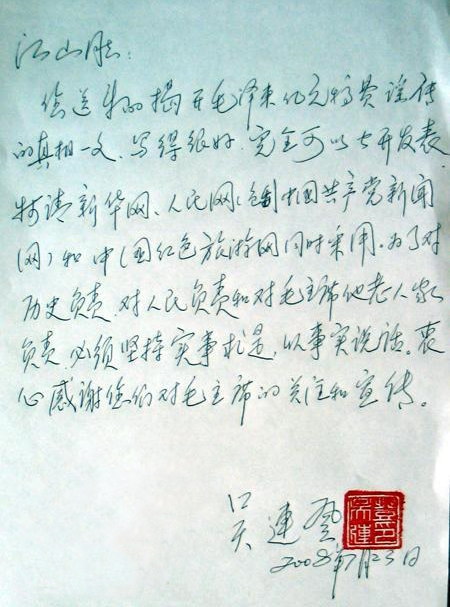 江山胜:
您送来的揭开毛泽东亿元稿费谣传
的真相一文、写得很好、完全可以公开发表
特请新华网、人民网(包括中国共产党新闻
网)和中国红色旅游网同时采用。为了对
历史负责、对人民负责和对毛主席他老人家
负责、必须坚持实事求是、以事实说话。衷
心感谢您们对毛主席的关注和宣传。
吴连登
2008年7月23日